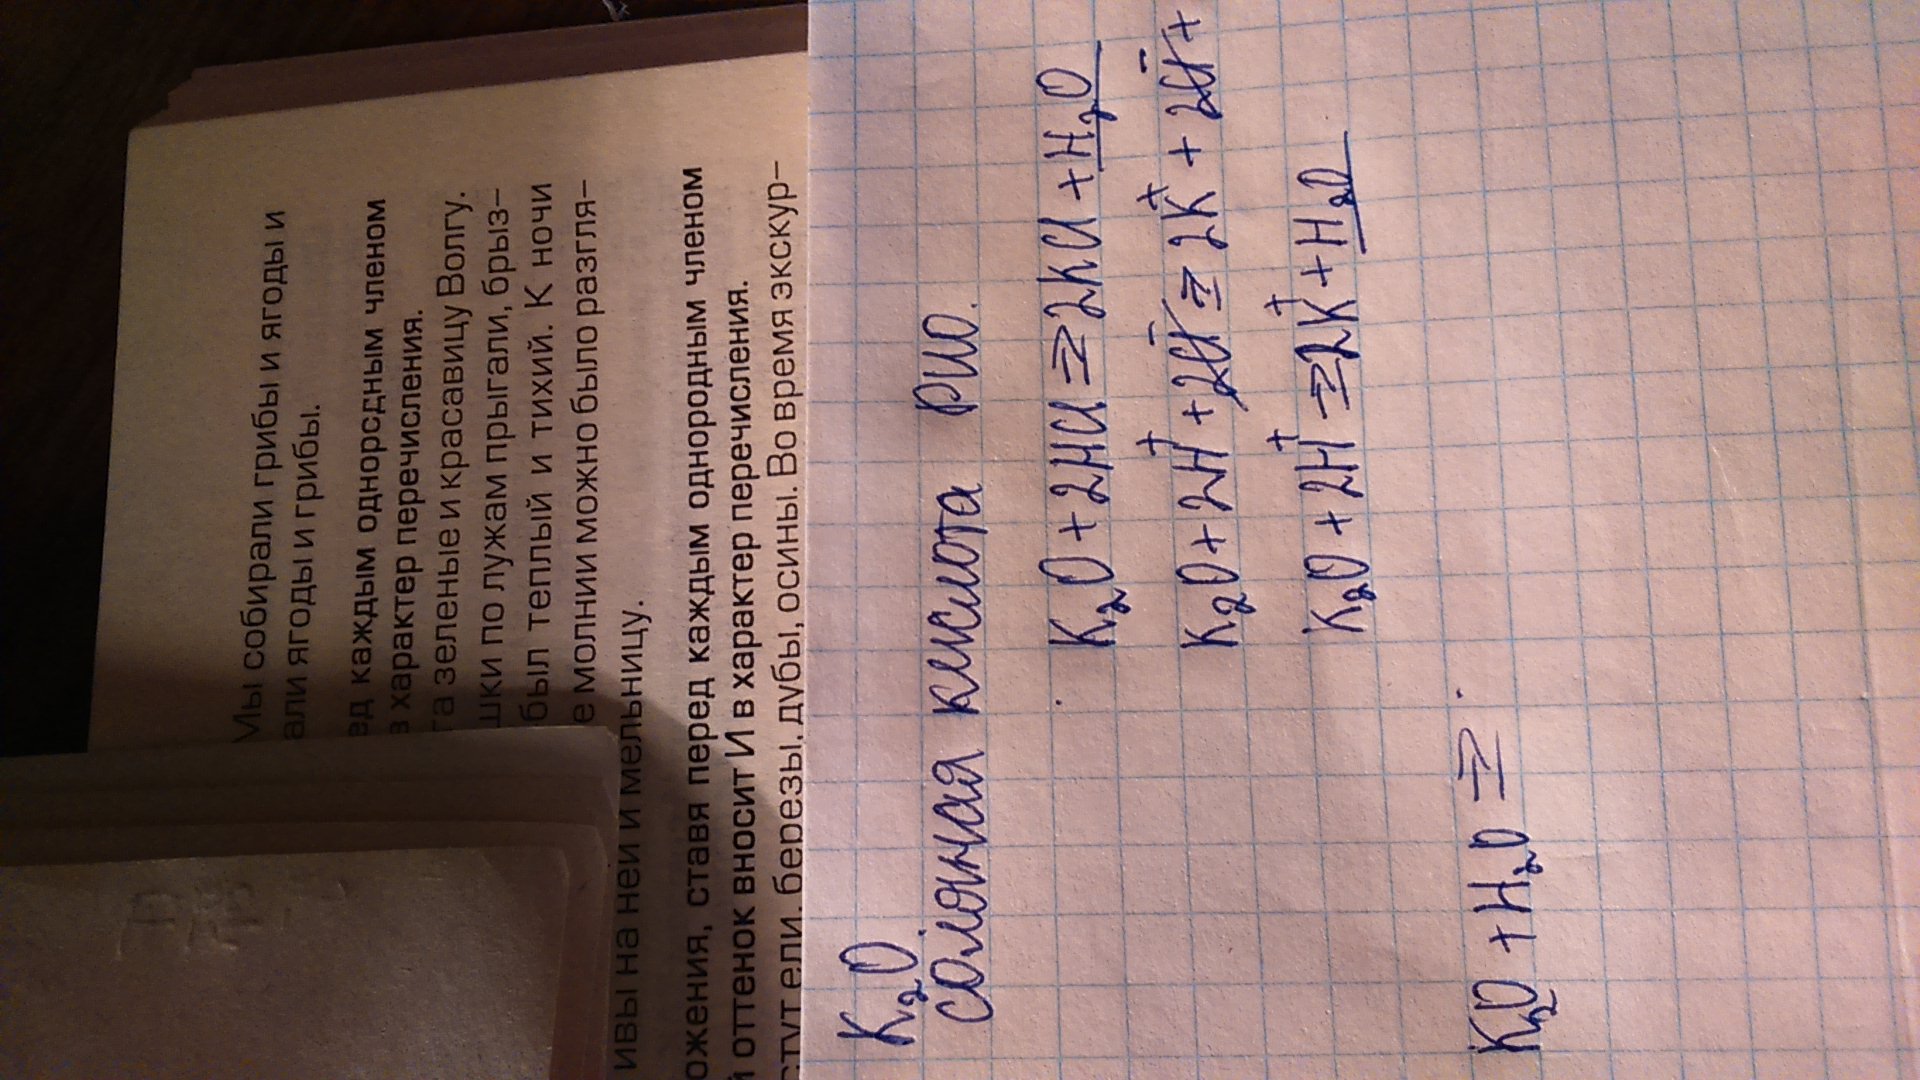 Мы собирали грибы и ягоды и
али ягоды и грибы.
ед каждым однородным членом
в характер перечисления.
та зеленые и красавицу Волгу.
шки по лужам прыгали, брыз–
был теплый и тихий. К ночи
е молнии можно было разгля–
ивы на ней и мельницу.
ожения, ставя перед каждым однородным членом
й оттенок вносит И в характер перечисления.
стут ели, березы, дубы, осины. Во время экскур–
K₂O.
соляная кислота РИО.
K₂O + 2HCl = 2KCl + H₂O
K₂O + 2H⁺ + 2Cl⁻ = 2K⁺ + 2Cl⁻ +
K₂O + 2H⁺ = 2K⁺ + H₂O
K₂O + H₂O =